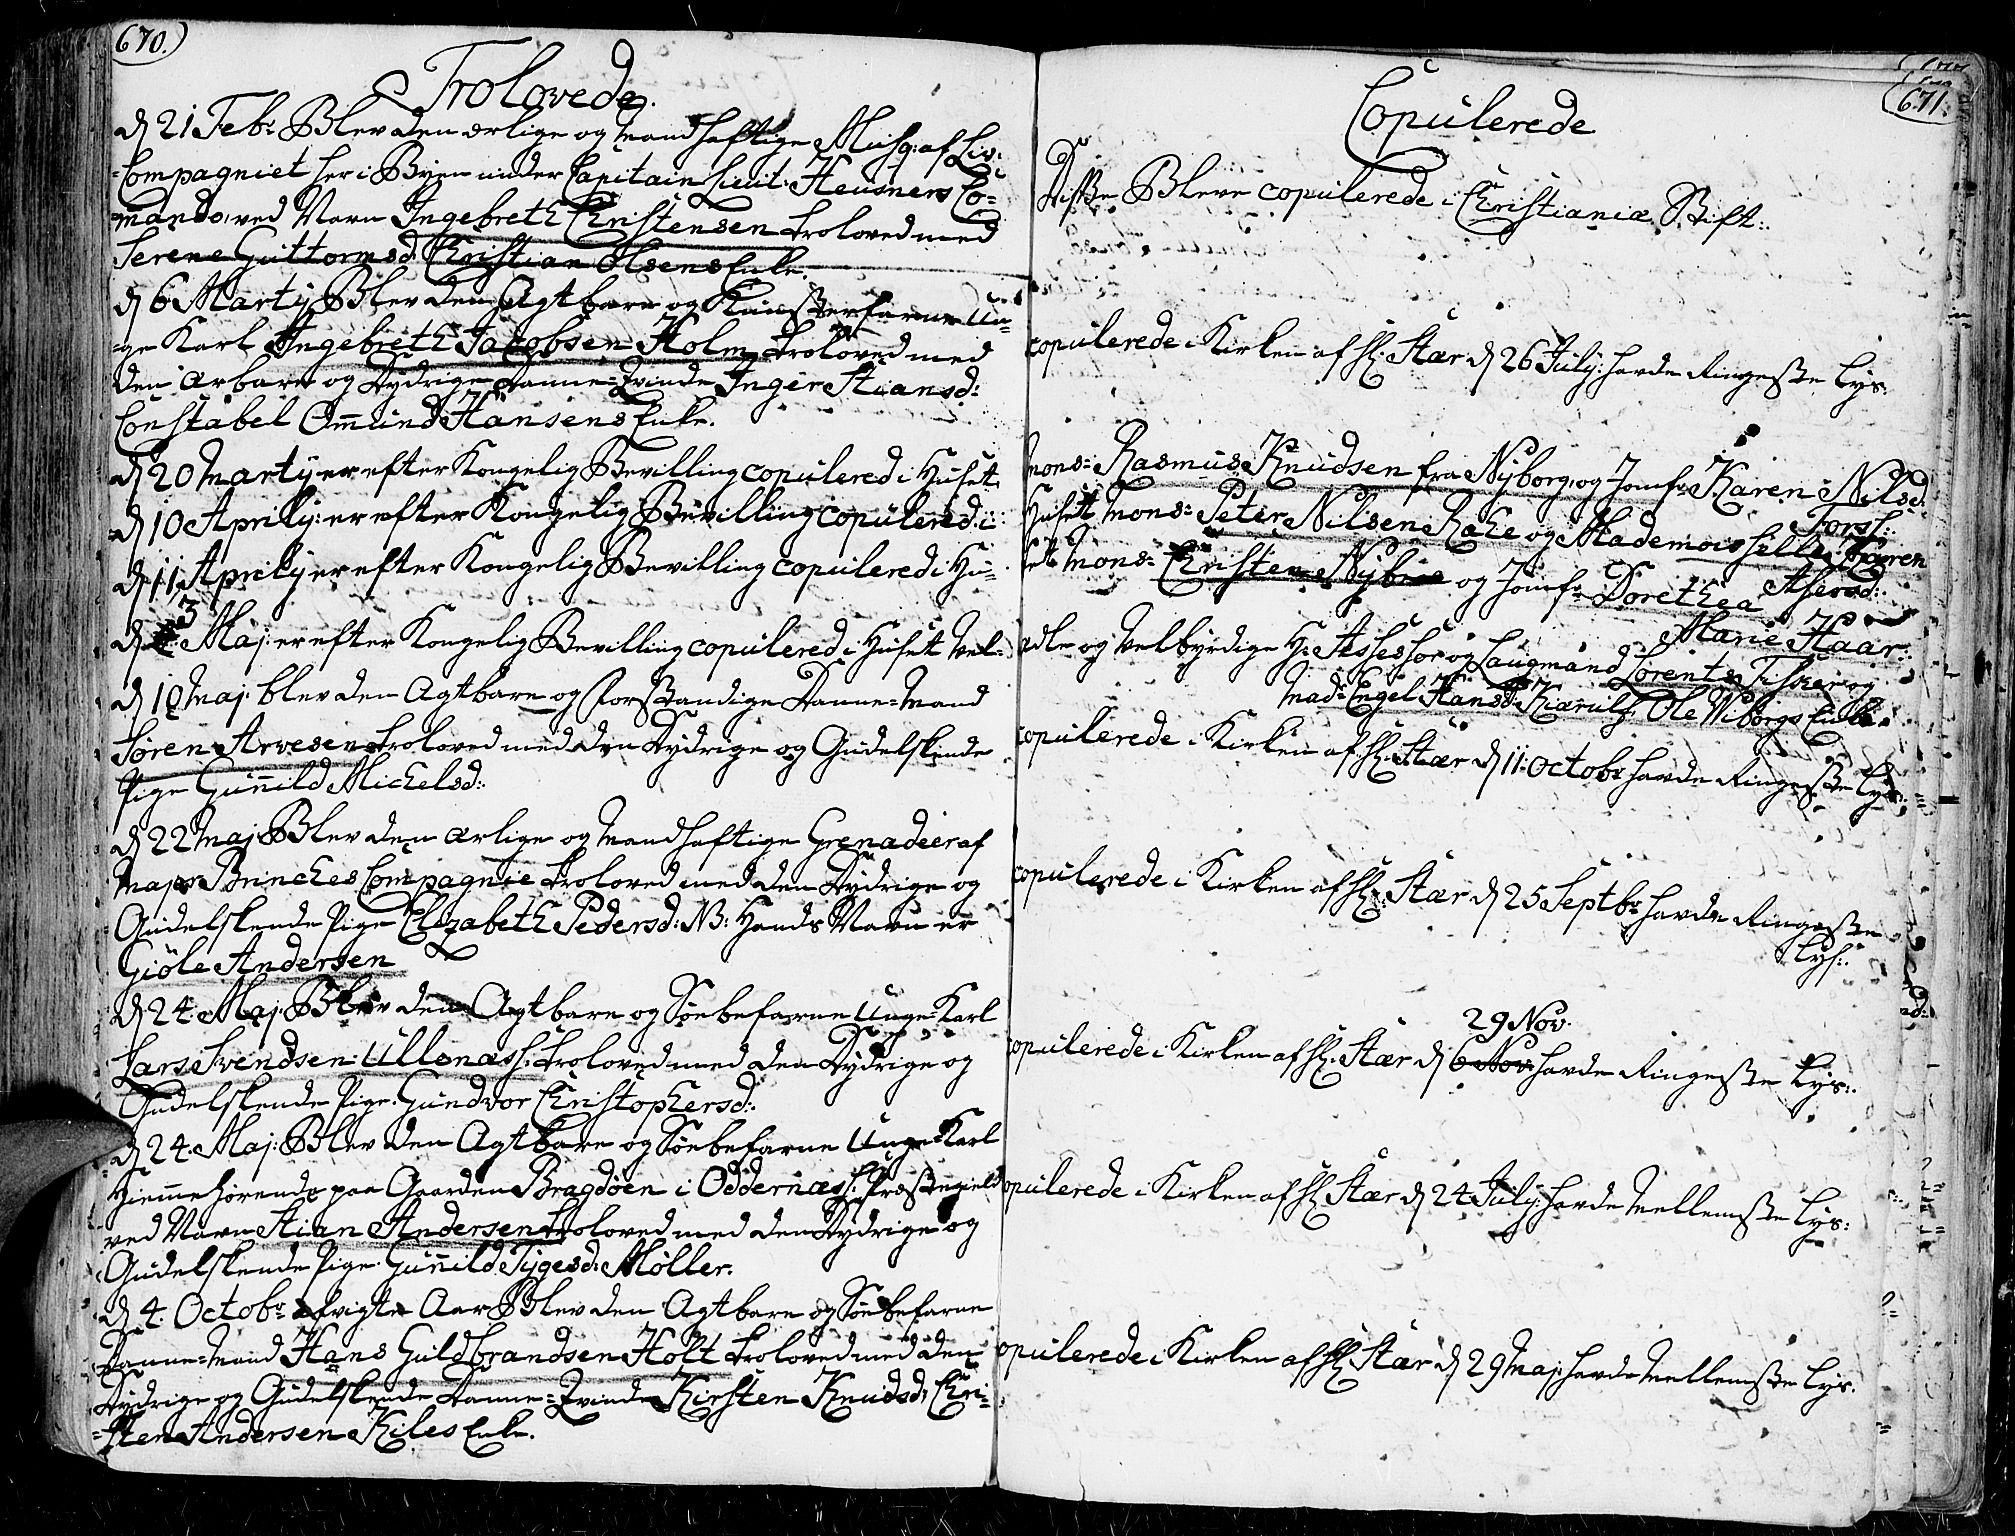 670.)
Trolovede.
d 21 Febr: Blev den ærlige og Mandhaftige Musq: af Liv-
Compagniet her i Byen under Capitain Lieut: Heusners Co-
mando, ved Navn Ingebreth Christensen troloved med
Serene Guttormsd: Christian Olsens Enke.
d 6 Martij Blev den Agtbare og Kunsterfarne Un-
ge Karl Ingebreth Jacobsen Holm troloved med
den ærbare og Dydrige Danne-Qvinde Inger Stiansd:
Constabel Ommund Hansens Enke.
d 20 Martij er efter Kongelig Bevilling copulered i Huset
d 10 Aprilij: er efter Kongelig Bevilling copulered i
d 11 Aprilij er efter Kongelig Bevilling copulered i Hu-
d 3 Maj: er efter Kongelig Bevilling copulered i Huset Vel-
d 10 Maj: blev den Agtbare og Forstandige Danne-Mand
Søren Arvesen troloved med den Dydrige og Gudelskende
Pige Gunnild Michelsd:
d 22 Maj Blev den ærlige og Mandhaftige Grenadeer af
Major Brinches Compagnie troloved med den Dydrige og
Gudelskende Pige Elizabeth Pedersd: NB: Hands Navn er
Giøle Andersen
d 24. Maj: Blev den Agtbare og Søebefarne Unge Karl
Lars Svendsen Ullenæs: troloved med den Dydrige og
Gudelskende Pige Gundvor Christophersd:
d 24. Maj: Blev den Agtbare og Søebefarne Unge Karl
hiemmehørende paa Gaarden Bragdøen i Oddernæs: Præstegield
ved Navn Stian Andersen troloved med den Dydrige og
Gudelskende Pige Gunnild Tygesd: Møller.
d 4. Octobr: afvigte Aar Blev den Agtbare og Søebefarne
Danne-Mand Hans Guldbrandsen Holt troloved med den
Dydrige og Gudelskende Danne-Qvinde Kirsten Knudsd: Chri-
sten Andersen Kiles Enke.
671.
Copulerede
Disse Bleve copulerede i Christianiæ Stift:
copulerede i Kirken af H: Stær d 26 July: havde Ringeste Lys:
Mons: Rasmus Knudsen fra Nyborg, og Jomfr: Karen Nilsd:
Huset Mons: Peter Nilsen Rahe og Mademoiselle Karen
set Mons: Christen Nybroe og Jomfr: Dorethea
Marie Haar:
ædle og Velbyrdige H: Assessor og Laugmand Lorentz Fisker og
Mad: Engel Hansd: Kiærulf Ole Wiborgs Enke
copulerede i Kirken af H: Stær d 11: Octobr: havde Ringeste Lys:
copulerede i Kirken af H: Stær d 25 Septbr: havde Ringeste
Lys:
29 Nov.
copulerede i Kirken af H: Stær d 6 Nov: havde Ringeste Lys:
copulerede i Kirken af H: Stær d 24 July: havde Mellemste Lys:
copulerede i Kirken af H: Stær d 29 Maj: havde Mellemste Lys: